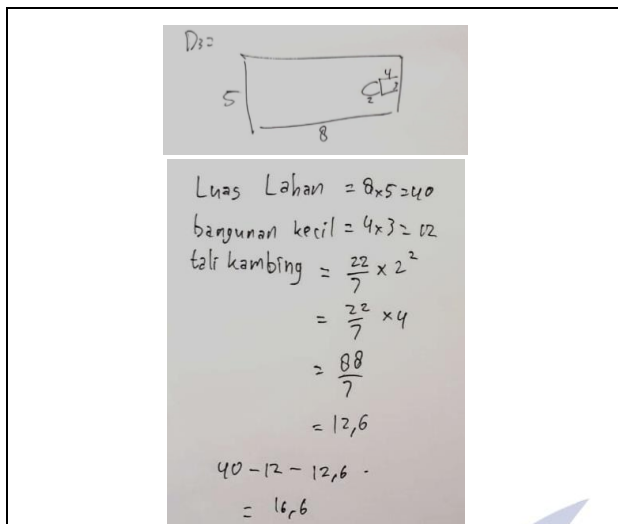 D3=
5
4
2
2
8
Luas Lahan = 8x5=40
bangunan kecil = 4x3= 12
tali kambing = 22/7 x 2²
= 22/7 x 4
= 88/7
= 12,6
40-12-12,6.
= 16,6